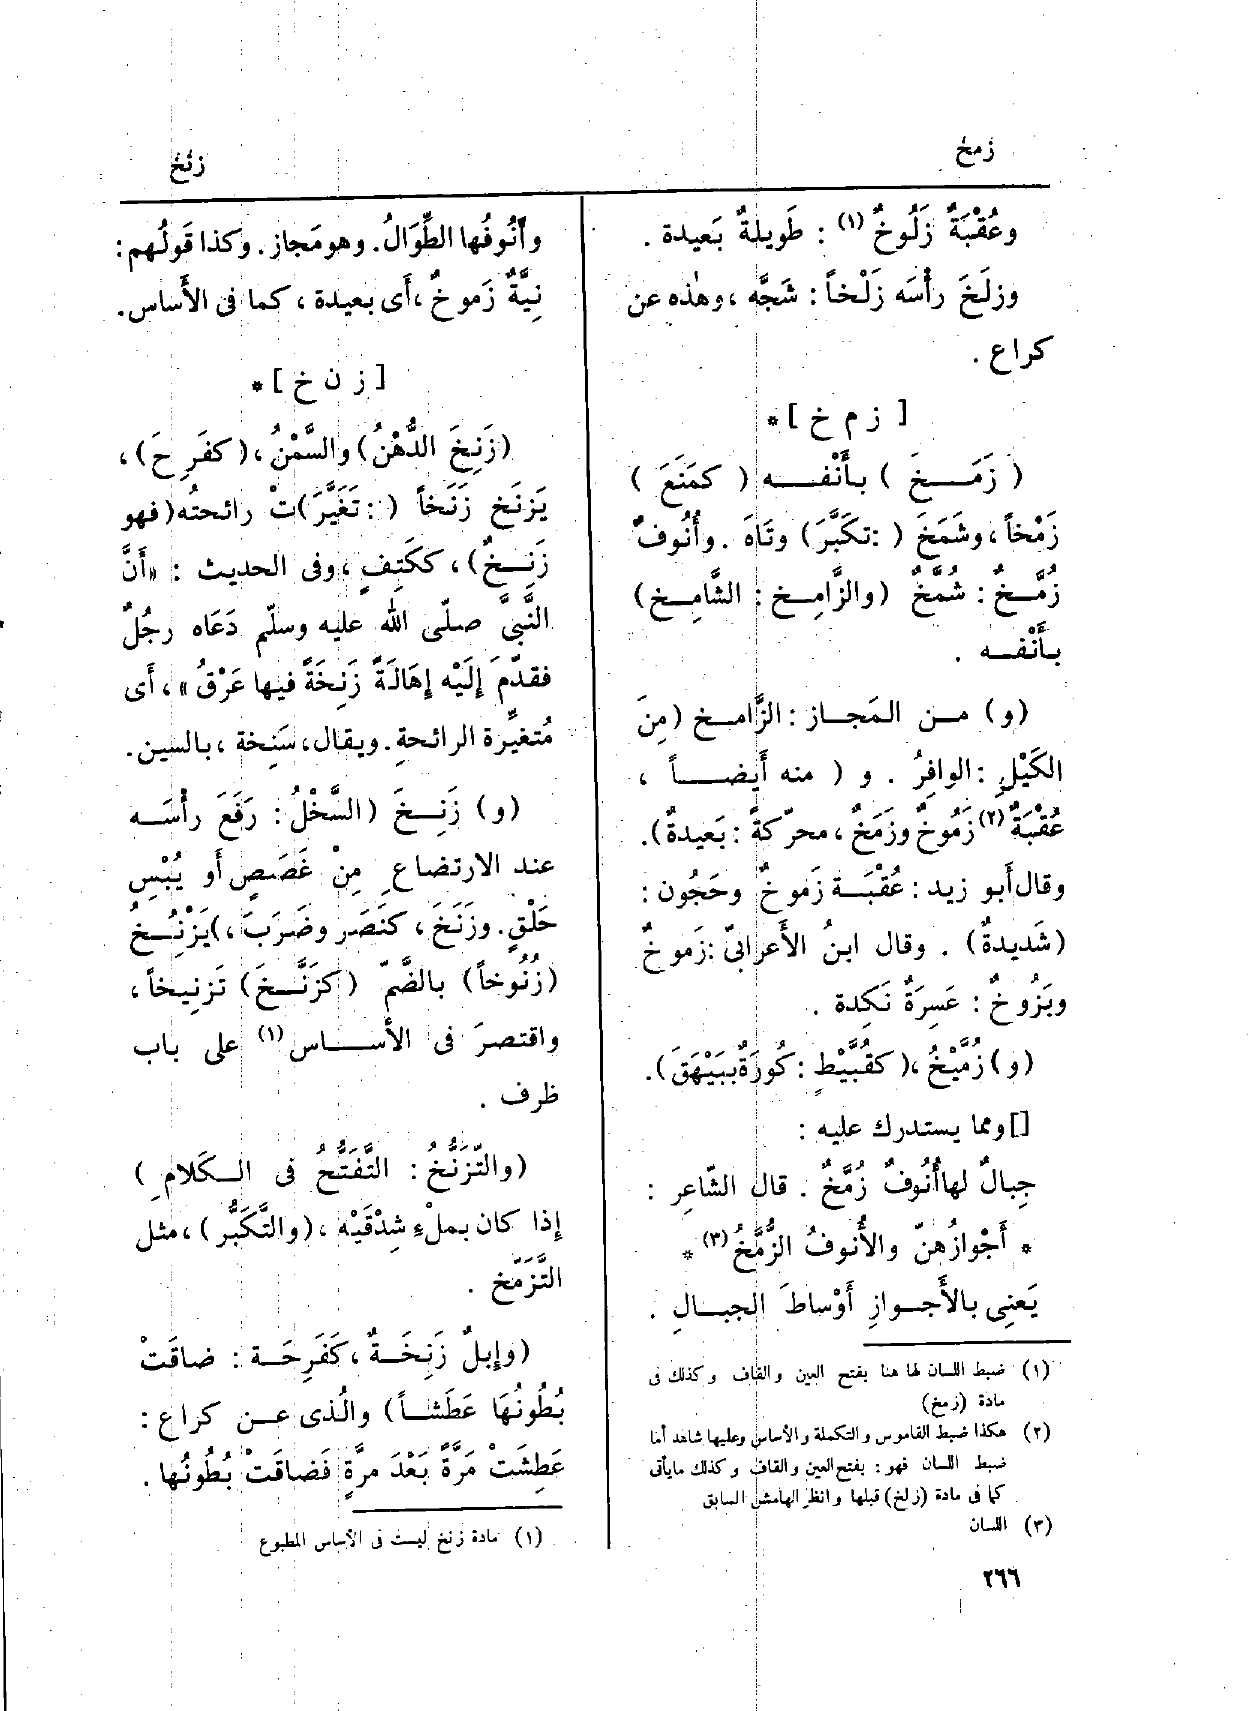 زمخ
زنخ
وعُقْبَةٌ زَلُوخٌ (١) : طَويلةٌ بَعيدة .
وزلَخَ رأْسَه زَلْخاً : شَجَّه ، وهٰذه عن
كراع .
[ ز م خ ] *
( زَمَـــخَ ) بأَنْفــــه ( كمَنَعَ )
زَمْخاً ، وشَمَخَ ( : تكَبَّرَ ) وتَاهَ . وأُنُوفٌ
زُمَّــخٌ : شُمَّخٌ (والزَّامِــخ : الشَّامِــخ )
بأَنْفــه .
(و) مــن المَجــاز : الزَّامــخ (مِنَ
الكَيْلِ : الوافِرُ . و ( منه أَيضـــاً ،
عُقْبَةٌ (٢) زَمُوخٌ وزَمَخٌ ، محرّكةً : بَعيدةٌ ).
وقال أَبو زيد : عُقْبَــة زَموخٌ وحَجُون :
(شَديدةٌ) . وقال ابنُ الأَعرابىّ : زَموخٌ
وبَزُوخٌ : عَسِرَةٌ نَكِدة .
(و) زُمَّيْخُ ، ( كقُبَّيْطٍ : كُورَةٌ ببَيْهَقَ ).
[] ومما يستدرك عليه :
جِبالٌ لها أُنُوفٌ زُمَّخٌ . قال الشّاعر :
* أَجْوازُهنّ والأُنوفُ الزُّمَّخُ (٣) *
يَعنِى بالأَجــوازِ أَوْساطَ الجبــالِ .
(١) ضبط اللسان لها هنا بفتح العين والقاف وكذلك فى
مادة (زمخ)
(٢) هكذا ضبط القاموس والتكملة والأساس وعليها شاهد أما
ضبط اللسان فهو : بفتح العين والقاف وكذلك مايأتى
كما فى مادة (زلخ) قبلها وانظر الهامش السابق
(٣) اللسان
٢٦٦
وأُنُوفُها الطِّوَالُ . وهو مَجاز . وكذا قَولُهم :
نِيَّةٌ زَموخٌ ، أَى بعيدة ، كما فى الأَساس .
[ ز ن خ ] *
(زَنِخَ الدُّهْنُ) والسَّمْنُ ، (كفَرِحَ) ،
يَزنَخ زَنَخاً ( : تَغَيَّرَ)تْ رائحتُه (فهو
زَنِــخٌ) ، ككَتِفٍ ، وفى الحديث : «أَنَّ
النَّبىَّ صلّى الله عليه وسلّم دَعَاه رجُلٌ
فقدّمَ إِلَيْه إِهَالَةً زَنِخَةً فيها عَرْقٌ» ، أَى
مُتغيِّرة الرائحةِ . ويقال ، سَنِخة ، بالسين .
(و) زَنِــخَ (السَّخْلُ : رَفَعَ رأْسَــه
عند الارتضاعِ مِنْ غَصَصٍ أَو يُبْسِ
حَلْقٍ . وزَنَخَ ، كنَصَر وضَرَبَ ،) يَزْنُــخُ
(زُنُوخاً) بالضّمّ (كزَنَّــخَ) تَزنيخاً ،
واقتصرَ فى الأَســـاس (١) على باب
ظرف .
(والتَّزَنُّخُ : التَّفَتُّحُ فى الــكَلامِ )
إِذا كان بمِلْءِ شِدْقَيْه ، (والتَّكَبُّر ) ، مثل
التَّزَمّخ .
(وإِبلٌ زَنِخَــةٌ ، كَفَرِحَــة : ضاقَتْ
بُطُونُهَا عَطَشــاً) والَّذى عــن كراع :
عَطِشَتْ مَرَّةً بَعْدَ مرَّةٍ فَضاقَتْ بُطُونُها .
(١) مادة زنخ ليست فى الأساس المطبوع